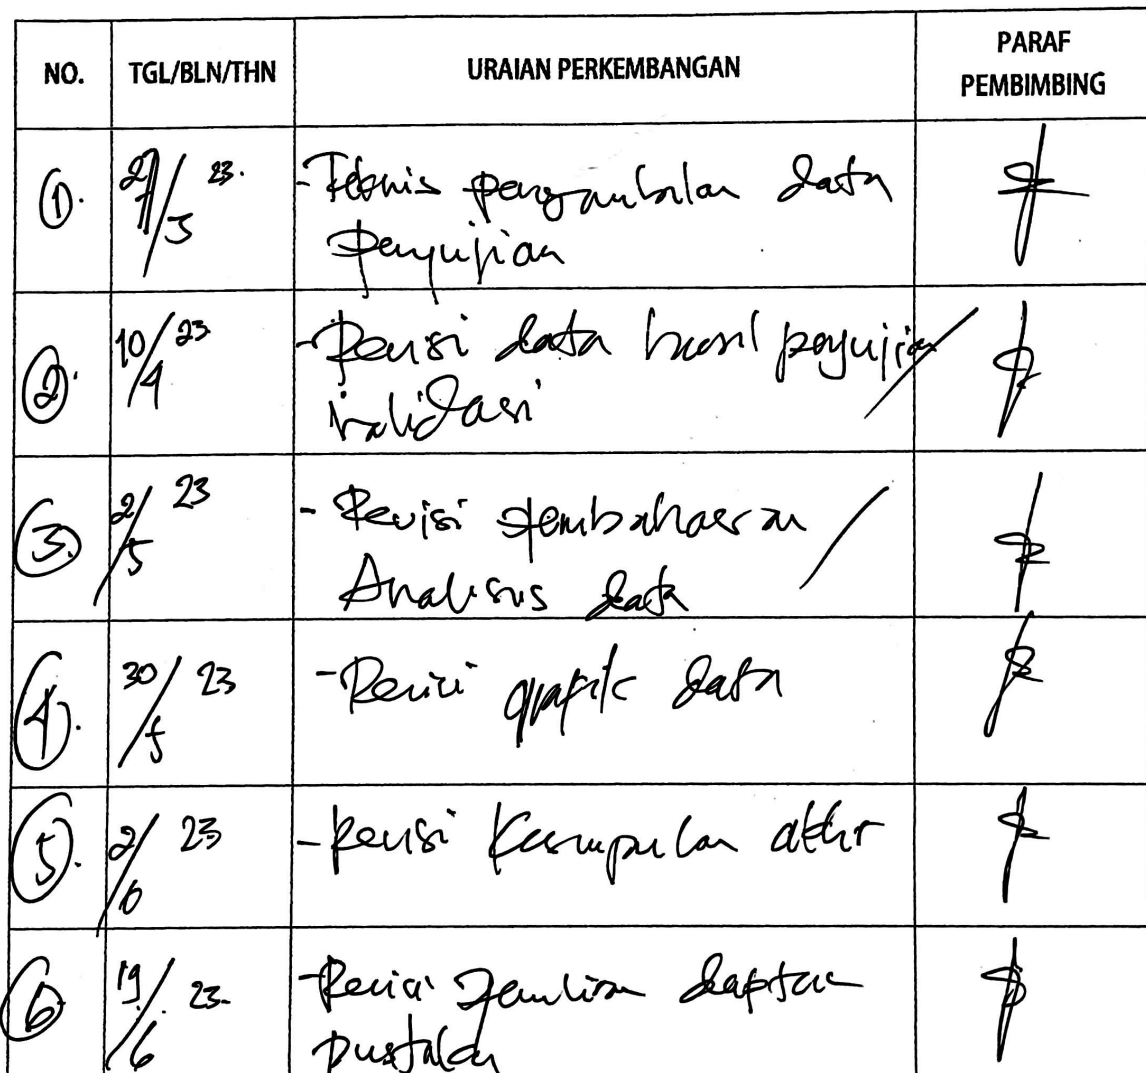 NO. TGL/BLN/THN URAIAN PERKEMBANGAN PARAF PEMBIMBING
1. 27/3 23. - Teknis pengambilan data
pengujian
2. 10/4 23 - Revisi data hasil pengujian
validasi
3. 2/5 23 - Revisi pembahasan
Analisis data
4. 30/5 23 - Revisi grafik data
5. 2/6 23 - Revisi Kesimpulan akhir
6. 19/6 23 - Revisi penulisan daftar
pustaka